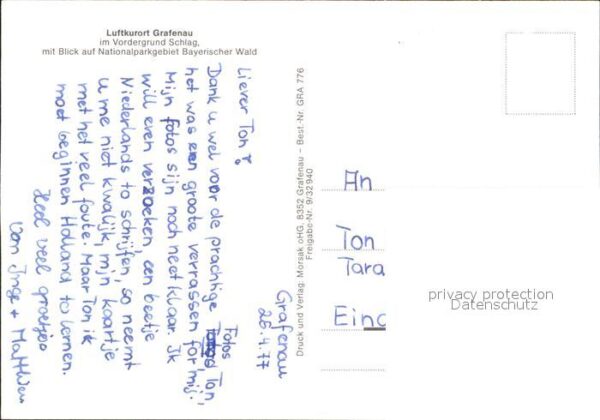 Luftkurort Grafenau
im Vordergrund Schlag,
mit Blick auf Nationalparkgebiet Bayerischer Wald
Grafenau
26.4.77
Liever Ton!
Dank u wel voor de prachtige Fotos Ton,
het was een groote verrassen for mij.
Mijn fotos sijn noch neet klaar. Ik
will even verzoeken, een beetje
Niederlands to schrijfen, so neemt
u me niet kwalijk, mijn kaartje
met het veel foute. Maar Ton ik
moet beginnen Holland to lernen.
Heel veel groetjes
Van Inge + Matthieu
Druck und Verlag: Morsak oHG, 8352 Grafenau – Best.-Nr. GRA 776
Freigabe-Nr. 9/32940
An
Ton
Tara
Eind
privacy protection
Datenschutz